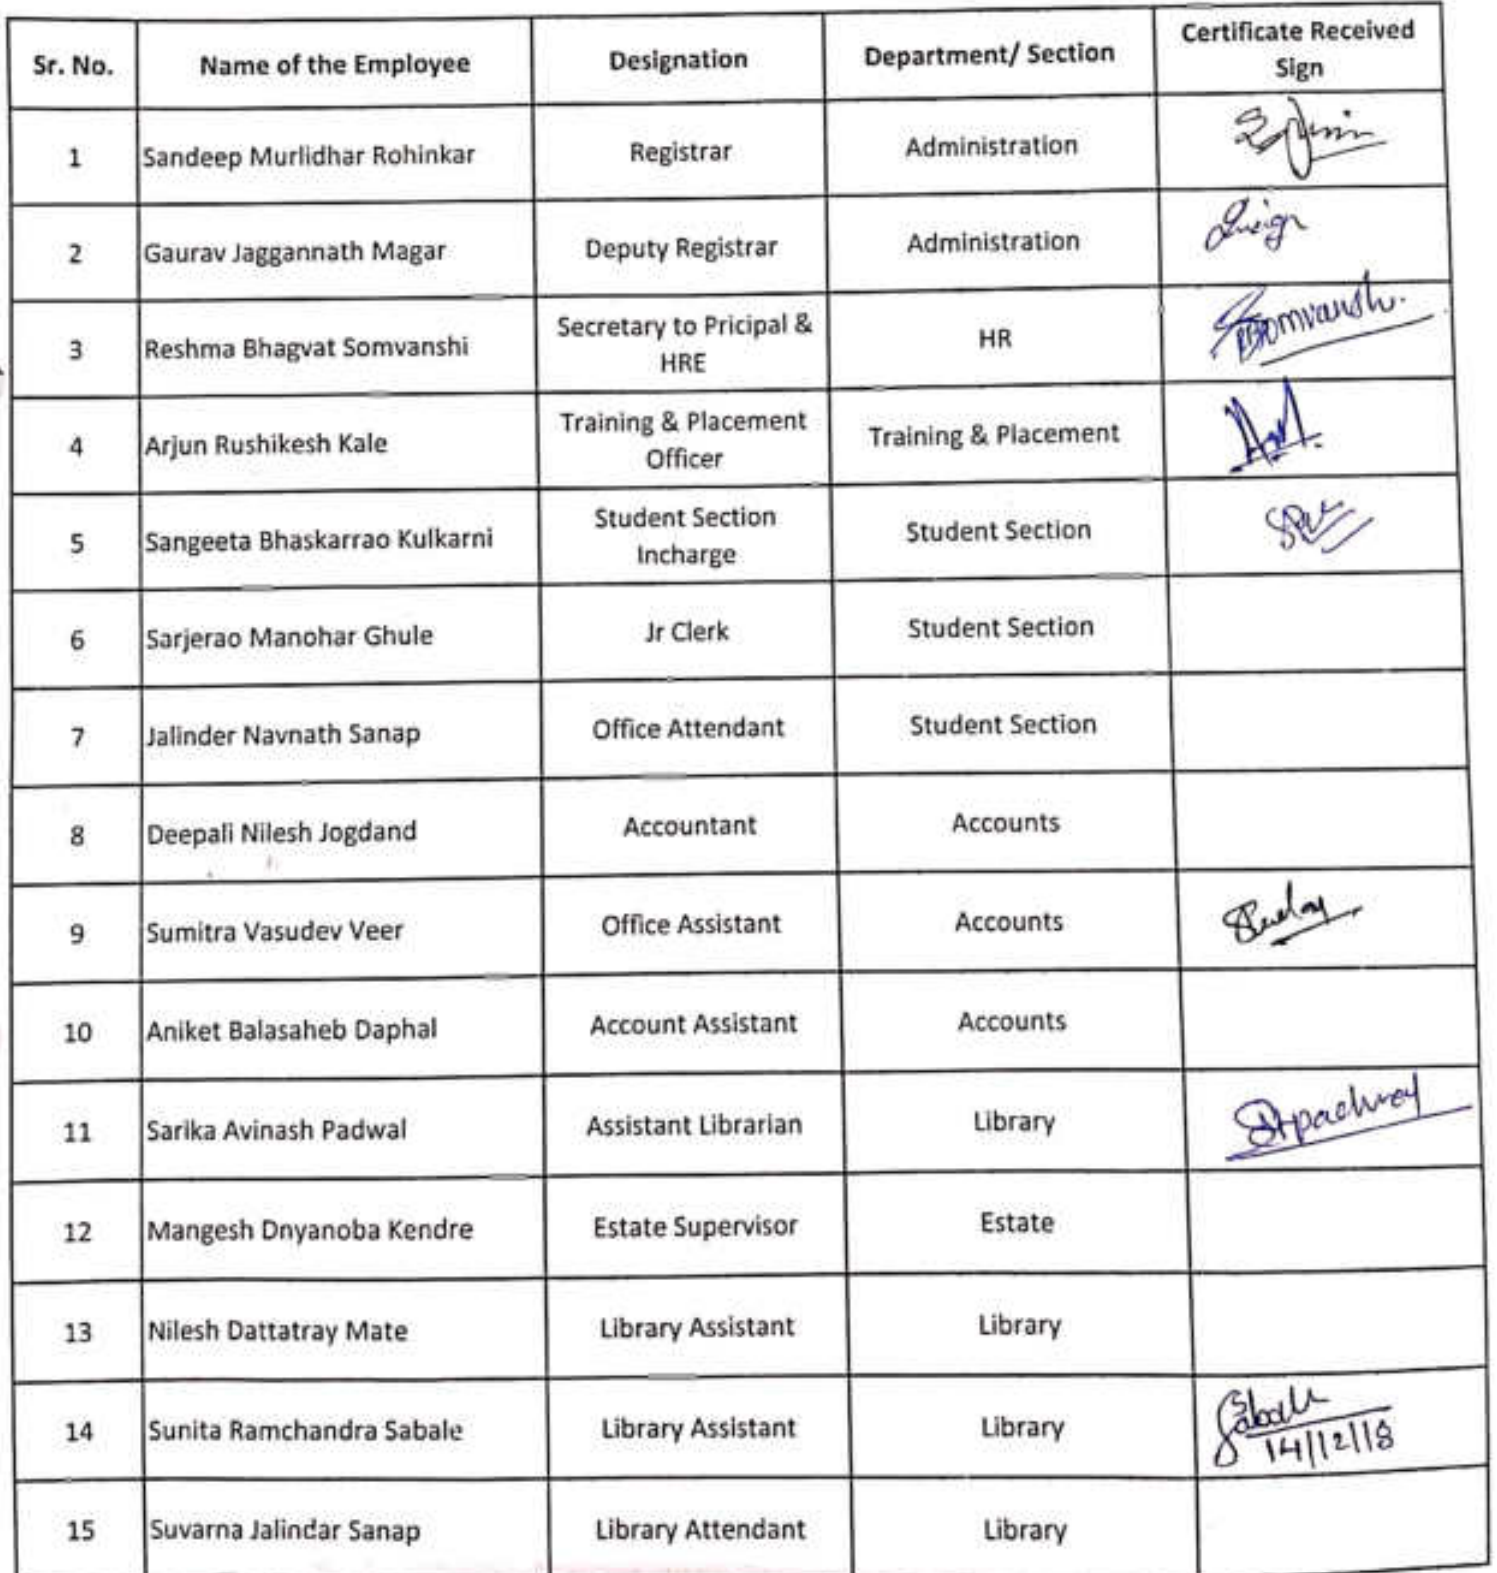 Sr. No. Name of the Employee Designation Department/ Section Certificate Received
Sign
1 Sandeep Murlidhar Rohinkar Registrar Administration
2 Gaurav Jaggannath Magar Deputy Registrar Administration
3 Reshma Bhagvat Somvanshi Secretary to Pricipal &
HRE HR Somvanshi
4 Arjun Rushikesh Kale Training & Placement
Officer Training & Placement
5 Sangeeta Bhaskarrao Kulkarni Student Section
Incharge Student Section
6 Sarjerao Manohar Ghule Jr Clerk Student Section
7 Jalinder Navnath Sanap Office Attendant Student Section
8 Deepali Nilesh Jogdand Accountant Accounts
9 Sumitra Vasudev Veer Office Assistant Accounts
10 Aniket Balasaheb Daphal Account Assistant Accounts
11 Sarika Avinash Padwal Assistant Librarian Library
12 Mangesh Dnyanoba Kendre Estate Supervisor Estate
13 Nilesh Dattatray Mate Library Assistant Library
14 Sunita Ramchandra Sabale Library Assistant Library
14/12/18
15 Suvarna Jalindar Sanap Library Attendant Library